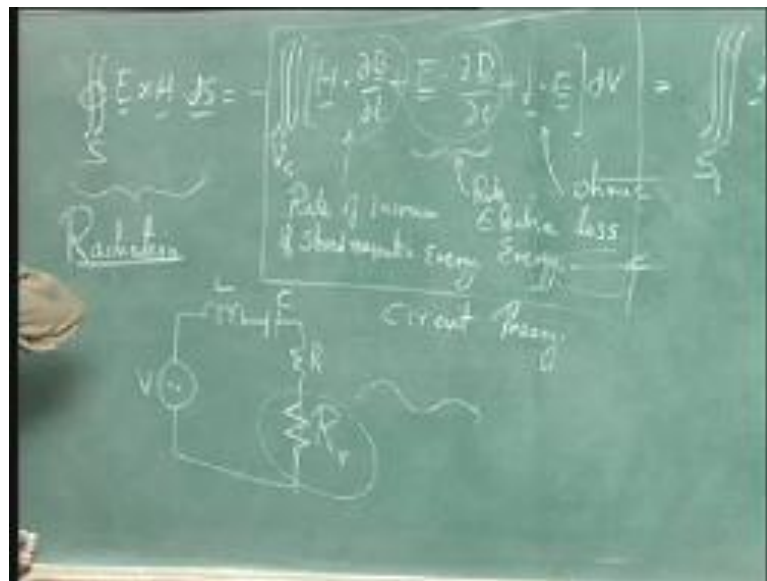 ∯ E × H · dS = - ∭ [H · ∂B/∂t + E · ∂D/∂t + J · E] dV = ∭
S
Radiation
Rate of increase
of Stored magnetic Energy
Rate
Electric
Energy
ohmic
Loss
Circuit Theory
L
C
R
V
R
r